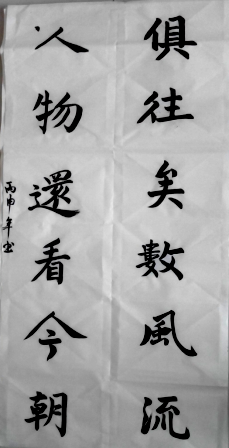 俱往矣數風流
人物還看今朝
丙申年書